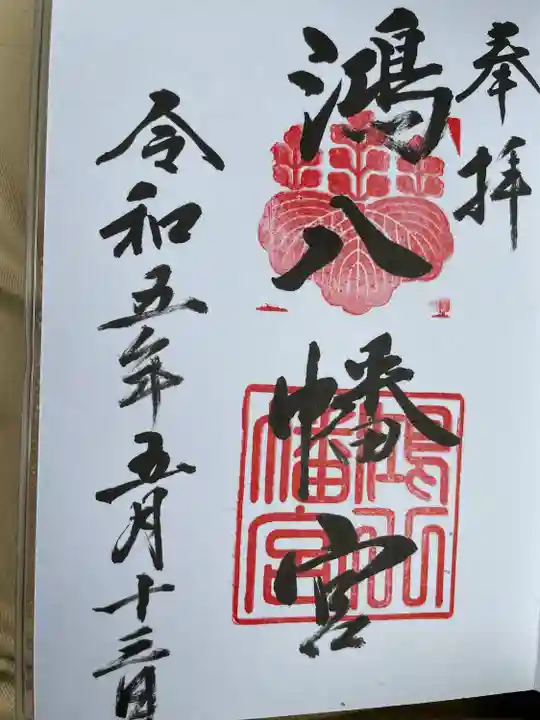 奉拝
鴻八幡宮
鴻八
幡宮
令和五年五月十三日